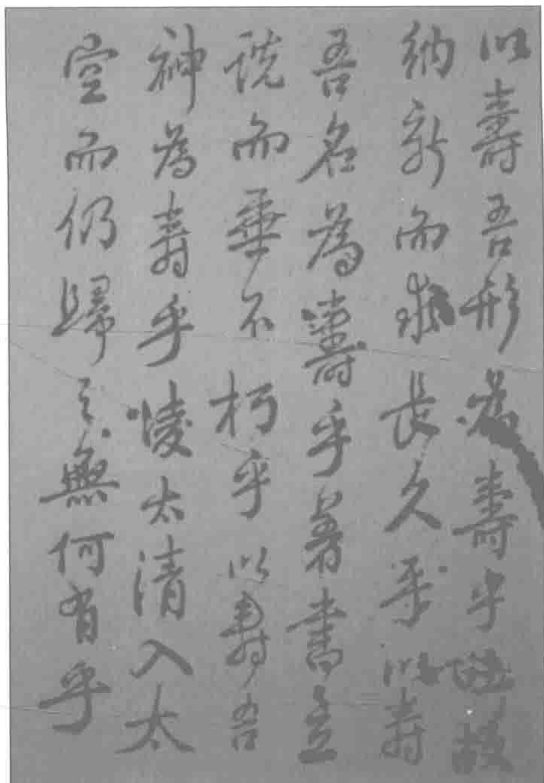 以壽吾形為壽乎故
納新而求長久乎以壽
吾名為壽乎著書立
說而垂不朽乎以壽吾
神為壽乎陵太清入太
空而仍歸之無何有乎